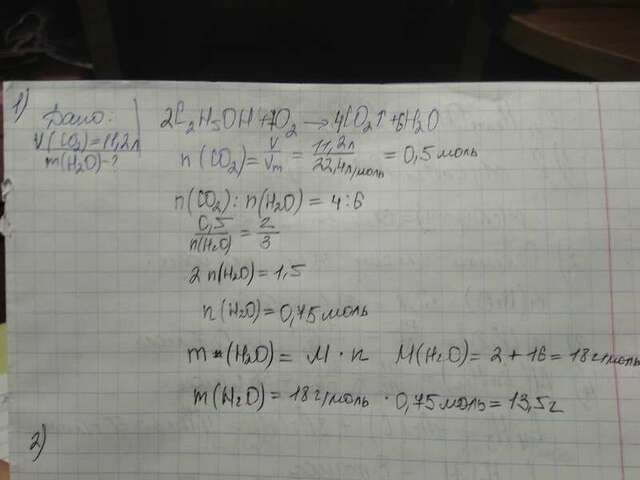 1)
Дано:
V(CO₂)=11,2л
m(H₂O)-?
2C₂H₅OH+7O₂→4CO₂↑+6H₂O
n(CO₂)=V/Vm=11,2л/22,4л/моль=0,5моль
n(CO₂):n(H₂O)=4:6
0,5/n(H₂O)=2/3
2n(H₂O)=1,5
n(H₂O)=0,75моль
m(H₂O)=M·n M(H₂O)=2+16=18г/моль
m(H₂O)=18г/моль·0,75моль=13,5г
2)